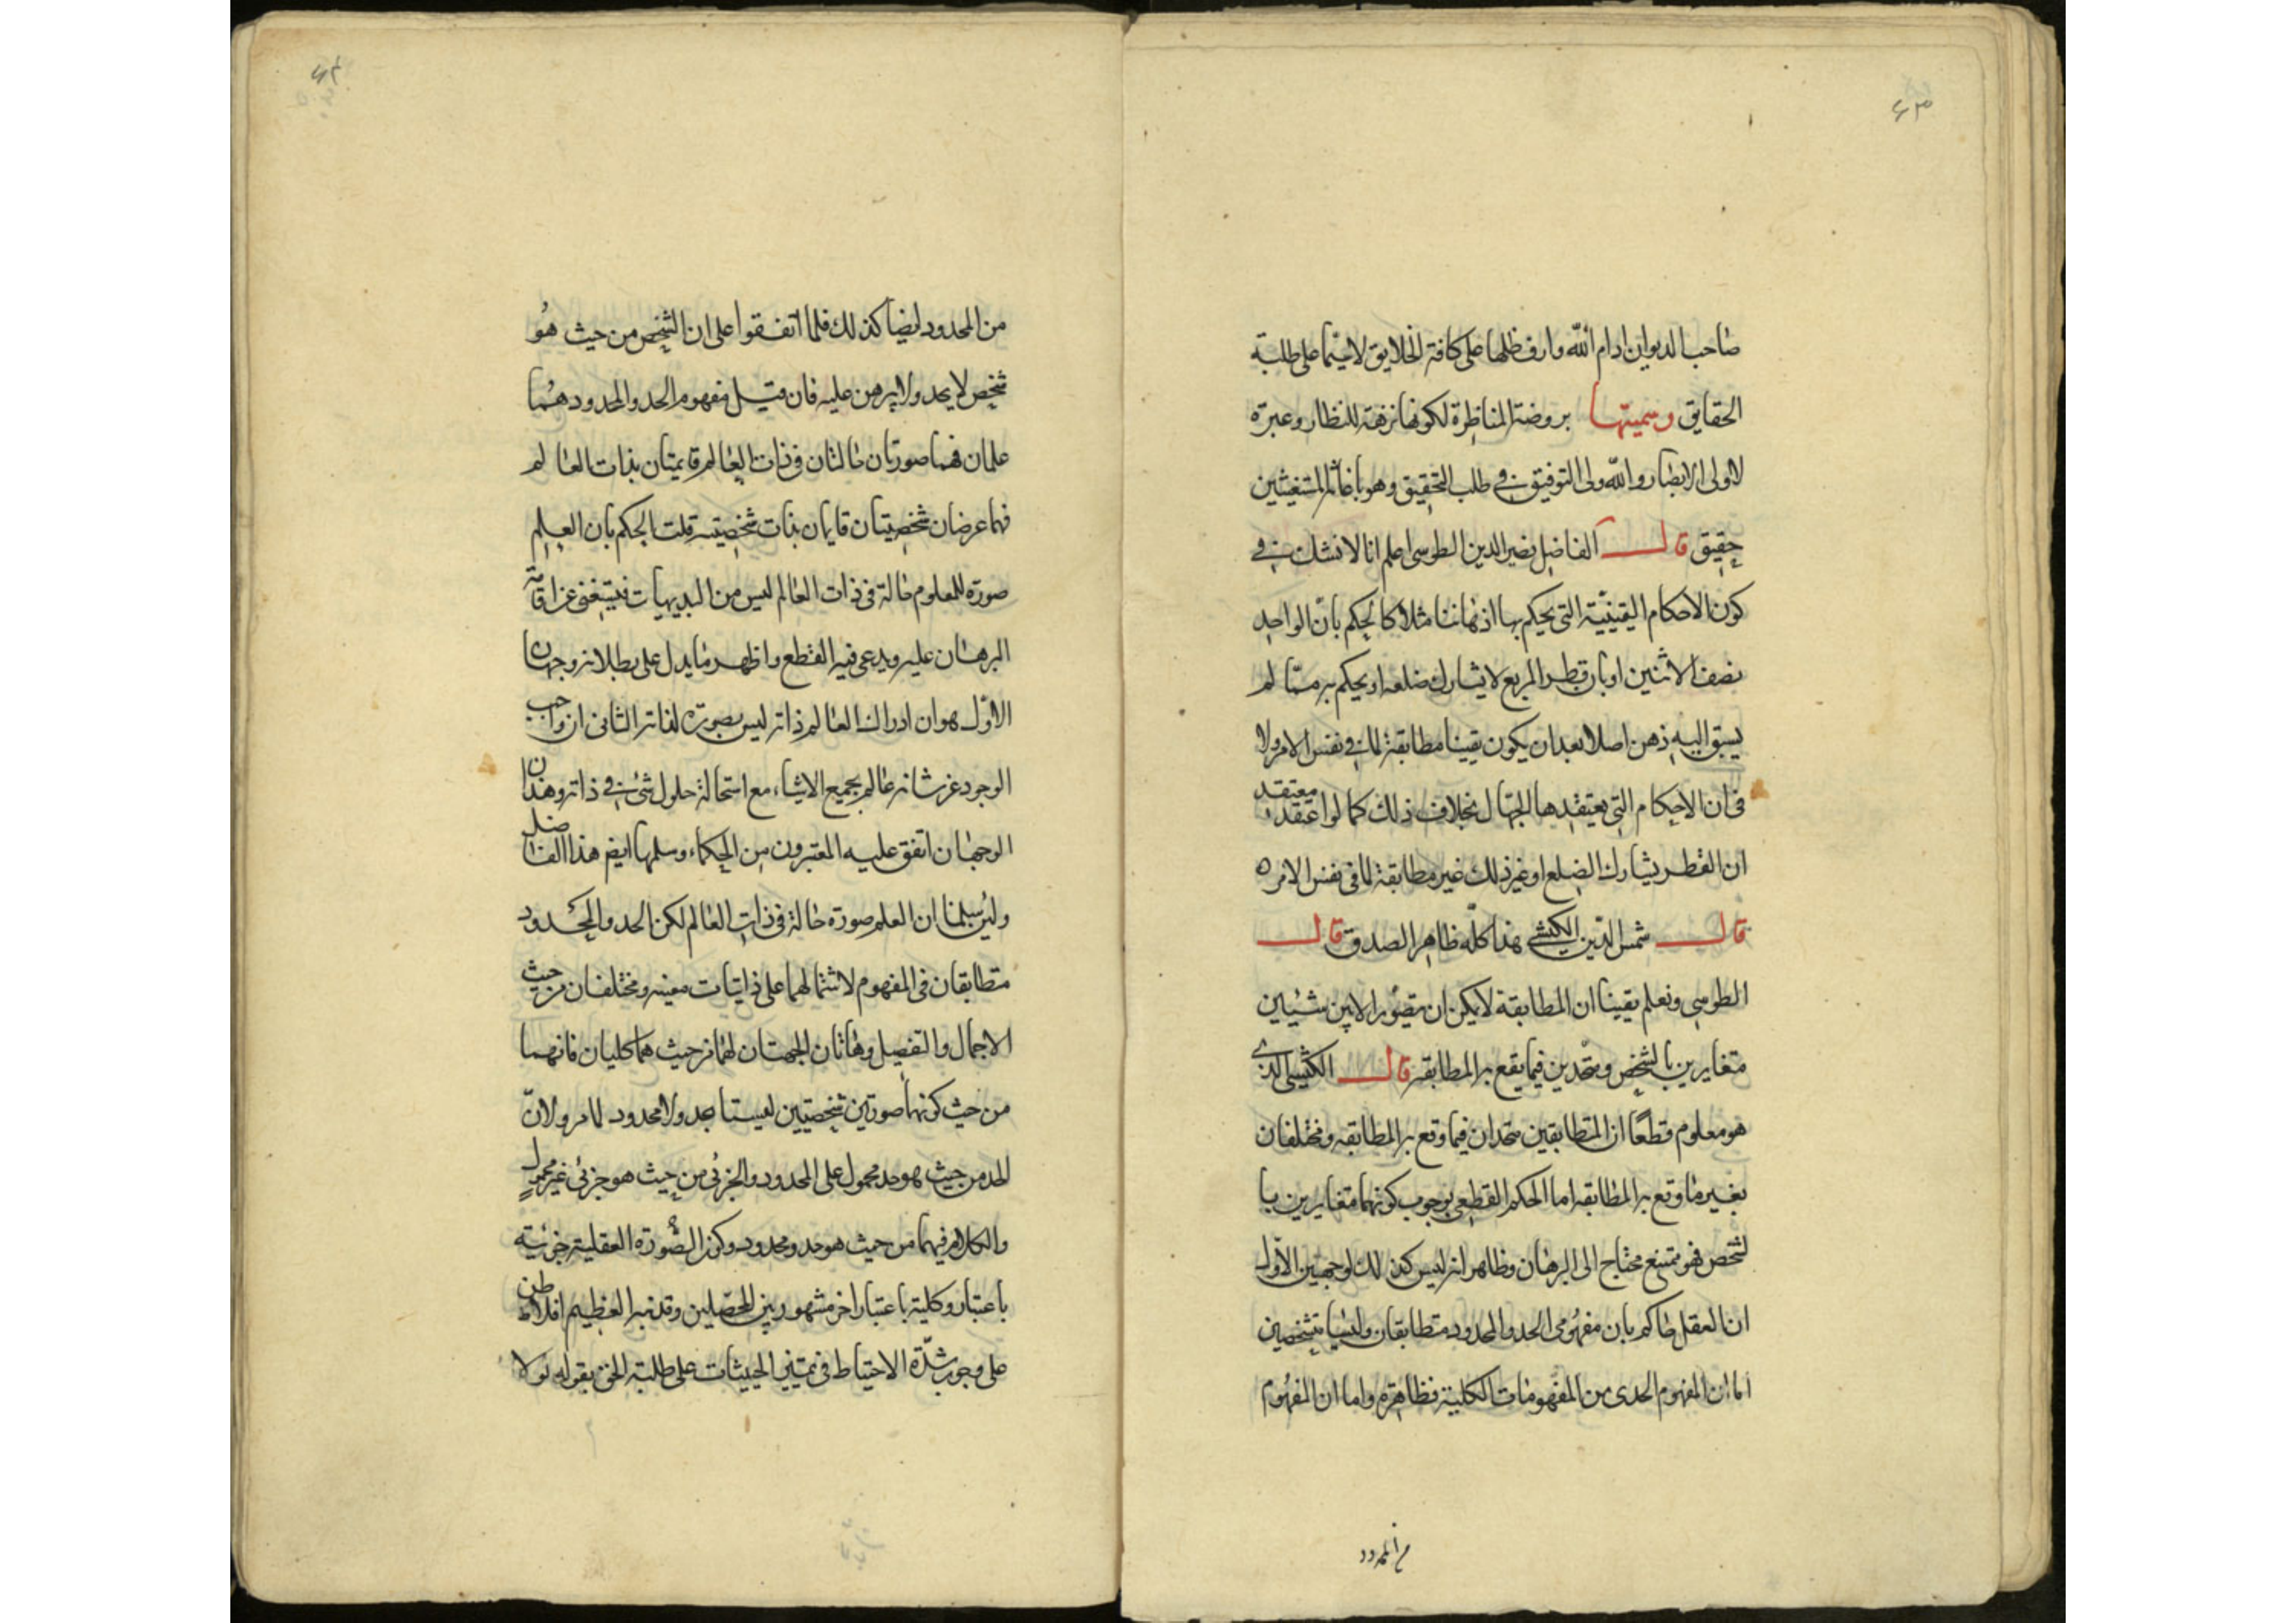 صاحب الديوان ادام الله وارف ظلها على كافة الخلايق لاسيما على طلبة
الحقايق وسميتها بروضة المناظرة لكونها نزهة للنظار وعبرة
لاولى الابصار والله ولى التوفيق فى طلب التحقيق وهو باغاثة المستغيثين
حقيق قال الفاضل نصير الدين الطوسى اعلم انا لا نشك فى
كون الاحكام اليقينية التى يحكم بها اذهاننا مثلا كالحكم بان الواحد
نصف الاثنين او بان قطر المربع لا يشارك ضلعه او يحكم به مما لم
يسبق اليه ذهن اصلا بعد ان يكون يقينا مطابقة لما فى نفس الامر ولا
فى ان الاحكام التى يعتقدها الجهال بخلاف ذلك كما لو اعتقد معتقد
ان القطر يشارك الضلع او غير ذلك غير مطابقة لما فى نفس الامر ه
قال شمس الدين الكيشى هذا كله ظاهر الصدق قال
الطوسى ونعلم يقينا ان المطابقة لا يمكن ان يتصور الا بين شيئين
متغايرين بالشخص ومتحدين فيما يقع به المطابقه قال الكيشى الذى
هو معلوم قطعا ان المتطابقين متحدان فيما وقع به المطابقه ومختلفان
بغير ما وقع به المطابقه اما الحكم القطعى بوجوب كونهما متغايرين با
لشخص فهو ممتنع محتاج الى البرهان وظاهر انه ليس كذلك لوجهين الاول
ان العقل حاكم بان مفهومى الحد والمحدود متطابقان وليسا بشخصين
اما ان المفهوم الحدى من المفهومات الكلية فظاهرة واما ان المفهوم
من المحدود
من المحدود ايضا كذلك فلما اتفقوا على ان الشخص من حيث هو
شخص لا يحد ولا يبرهن عليه فان قيل مفهوم الحد والمحدود هما
علمان فهما صورتان حالتان فى ذات العالم قايمتان بذات العالم
فهما عرضان شخصيتان قايمان بذات شخصيته قلت الحكم بان العلم
صورة للمعلوم حالة فى ذات العالم ليس من البديهيات فيستغنى عن اقامة
البرهان عليه ويدعى فيه القطع واظهر ما يدل على بطلانه وجهان
الاول هو ان ادراك العالم ذاته ليس بصورة لذاته الثانى ان واجب
الوجود عز شانه عالم بجميع الاشياء مع استحالة حلول شئ فى ذاته وهذان
الوجهان اتفق عليه المعتبرون من الحكماء وسلمها ايضا هذا الفاضل
ولئن سلمنا ان العلم صورة حالة فى ذات العالم لكن الحد والمحدود
متطابقان فى المفهوم لاشتمالهما على ذاتيات معينه ومختلفان من حيث
الاجمال والتفصيل وهاتان الجهتان لهما من حيث هما كليان فانهما
من حيث كونهما صورتين شخصيتين ليستا بحد ولا محدود لما مر ولان
الحد من حيث هو حد محمول على المحدود والجزئى من حيث هو جزئى غير محمول
والكلام فيهما من حيث هو حد ومحدود وكون الصورة العقلية جزئية
باعتبار وكلية باعتبار اخر مشهور بين المحصلين وقد نبه العظيم افلاطن
على وجوب شدة الاحتياط فى تمييز الحيثيات على طلبة الحق بقوله لولا